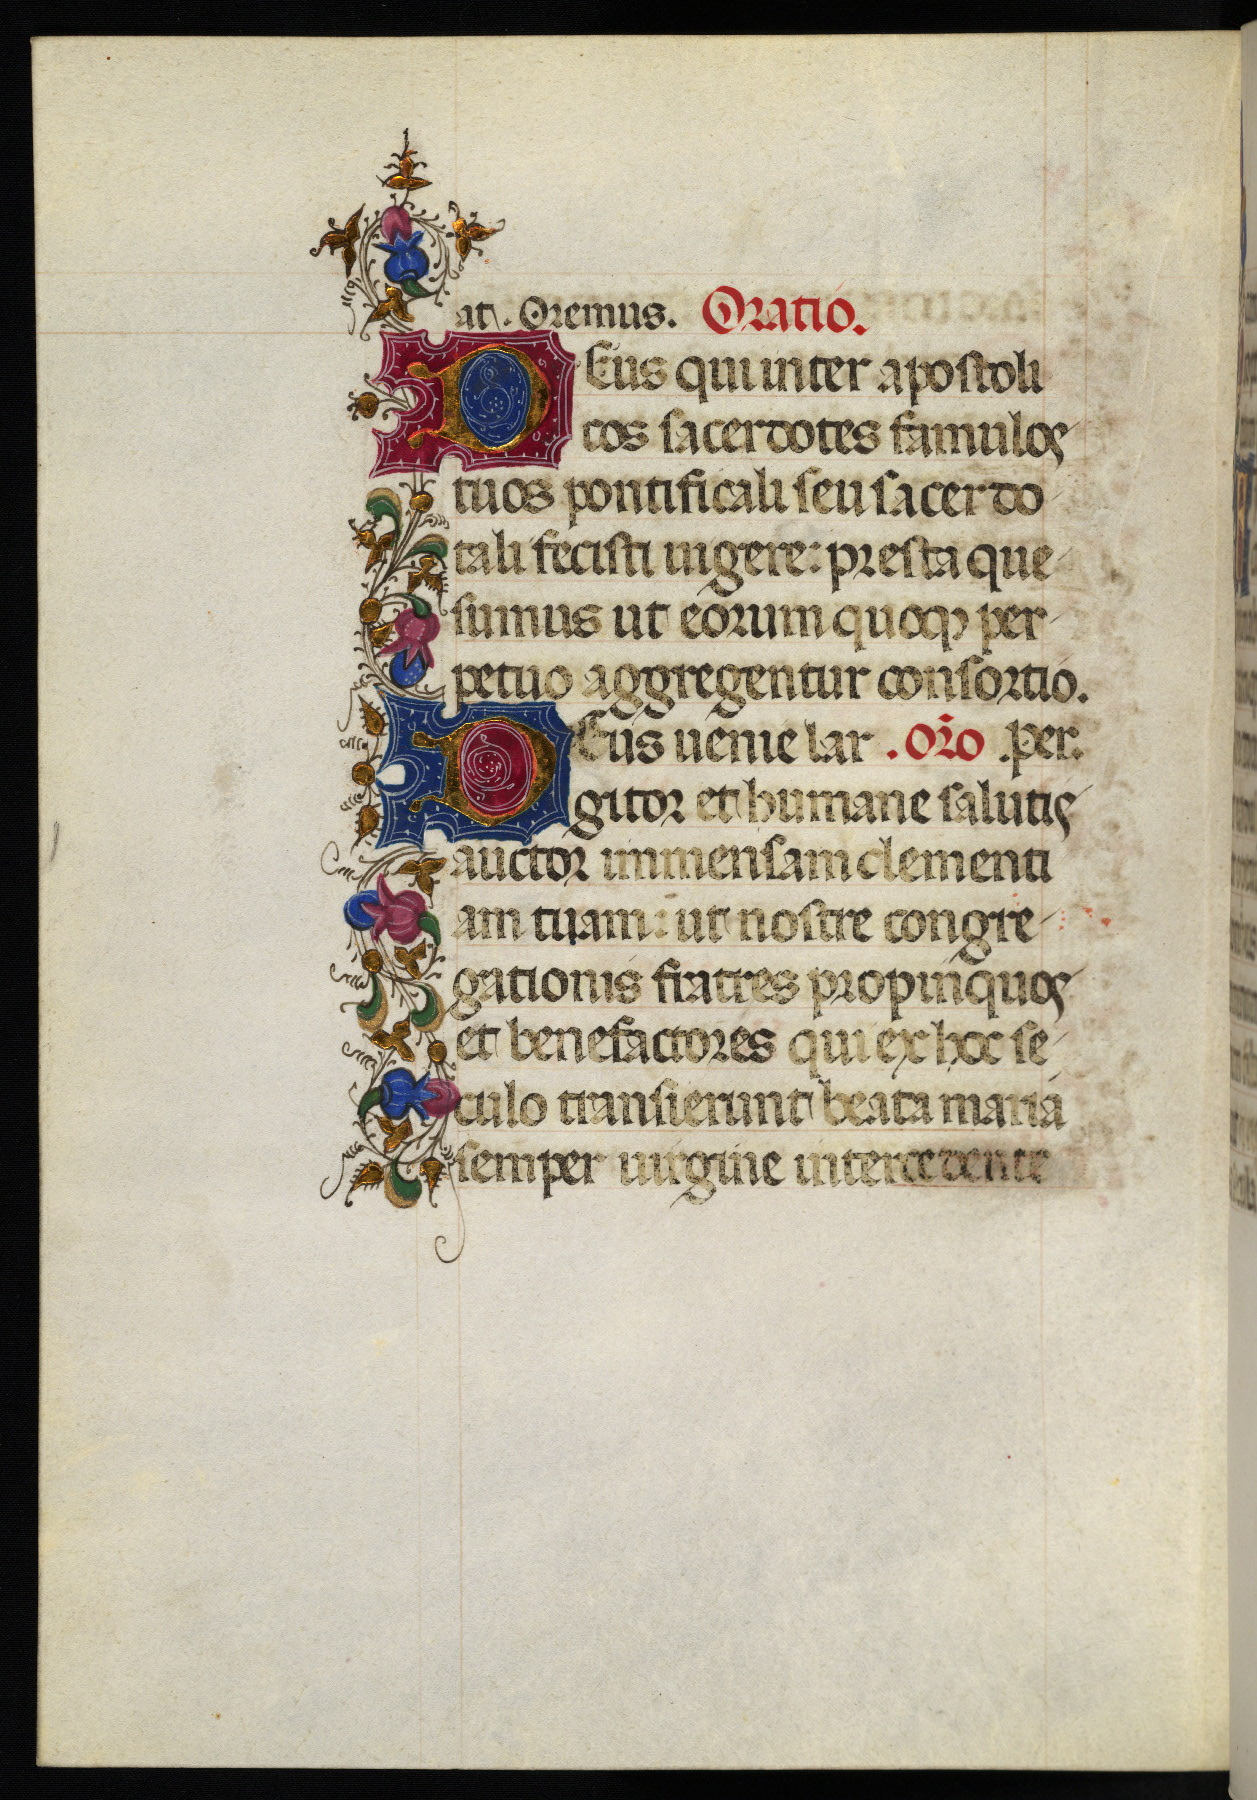 at. Oremus. Oratio.
DEus qui inter apostoli
cos sacerdotes famulos
tuos pontificali seu sacerdo
tali fecisti uigere: presta que
sumus ut eorum quoqꝫ per
petuo aggregentur consortio.
DEus uenie lar .Oro̅ .per.
gitor et humane salutis
auctor immensam clementi
am tuam: ut nostre congre
gationis fratres propinquos
et benefactores qui ex hoc se
culo transierunt beata maria
semper uirgine intercedente